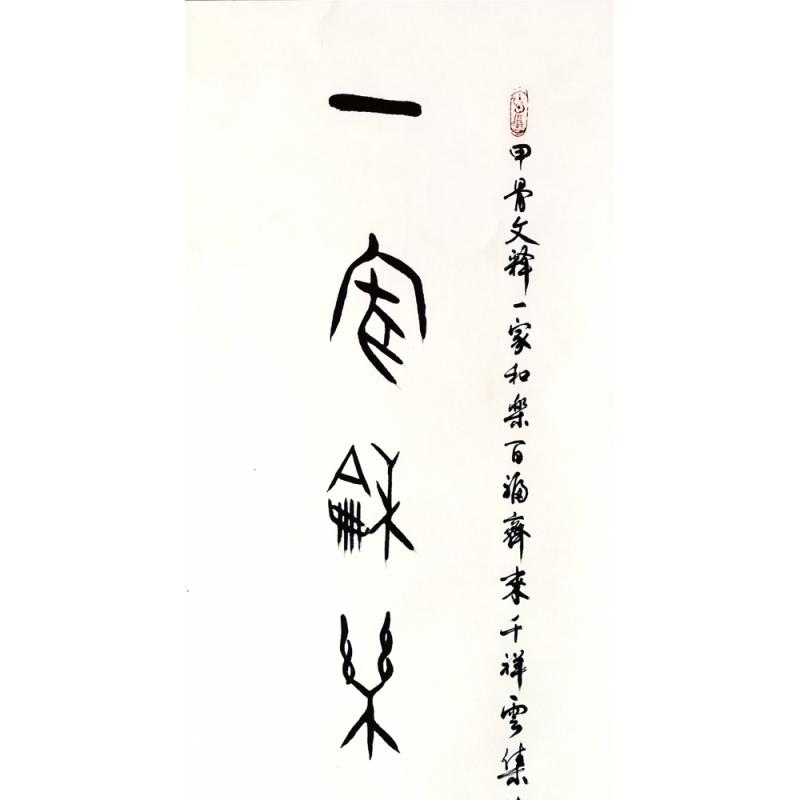 甲骨文释一家和樂百福齊來千祥雲集
一家龢樂